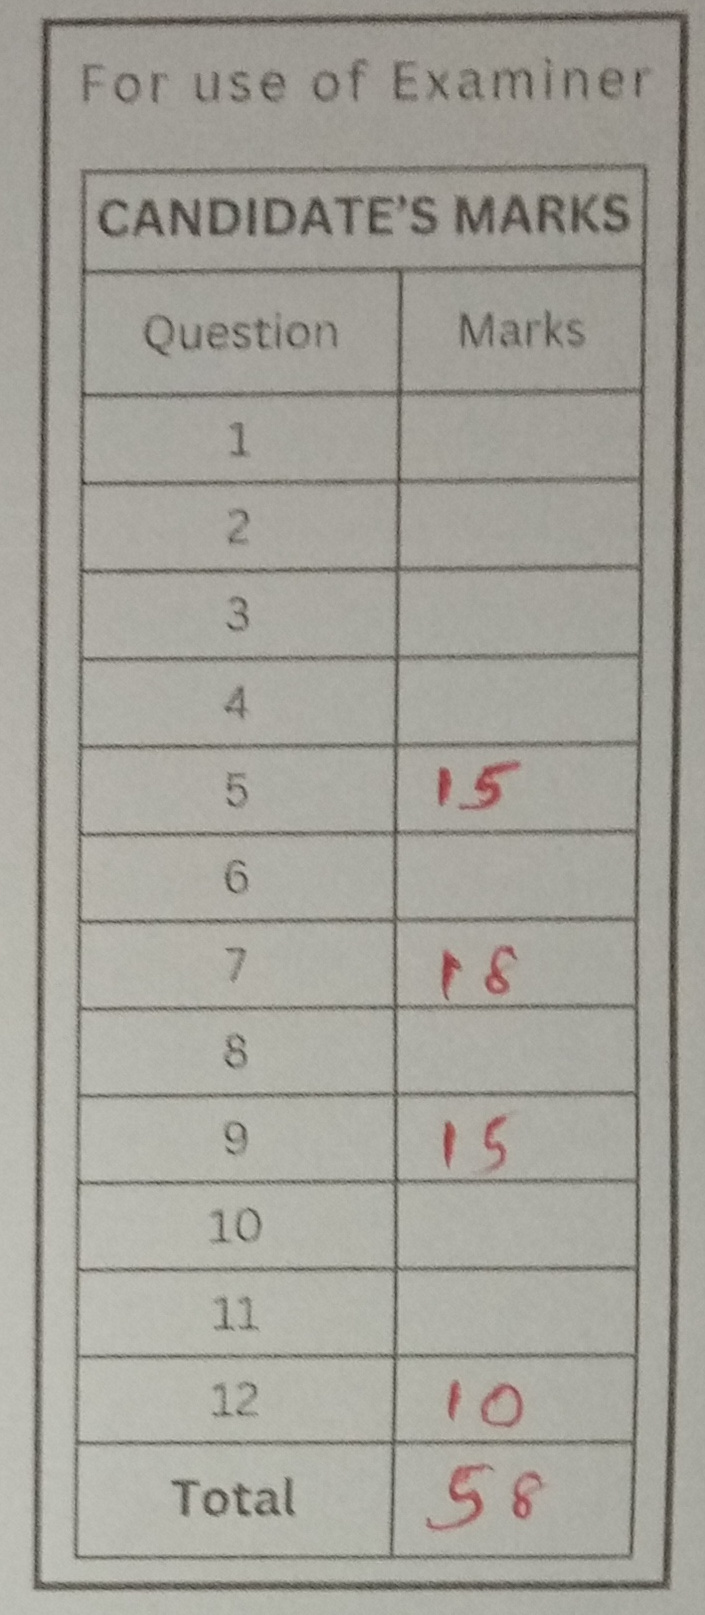 For use of Examiner
CANDIDATE'S MARKS
Question Marks
1
2
3
4
5 15
6
7 18
8
9 15
10
11
12 10
Total 58